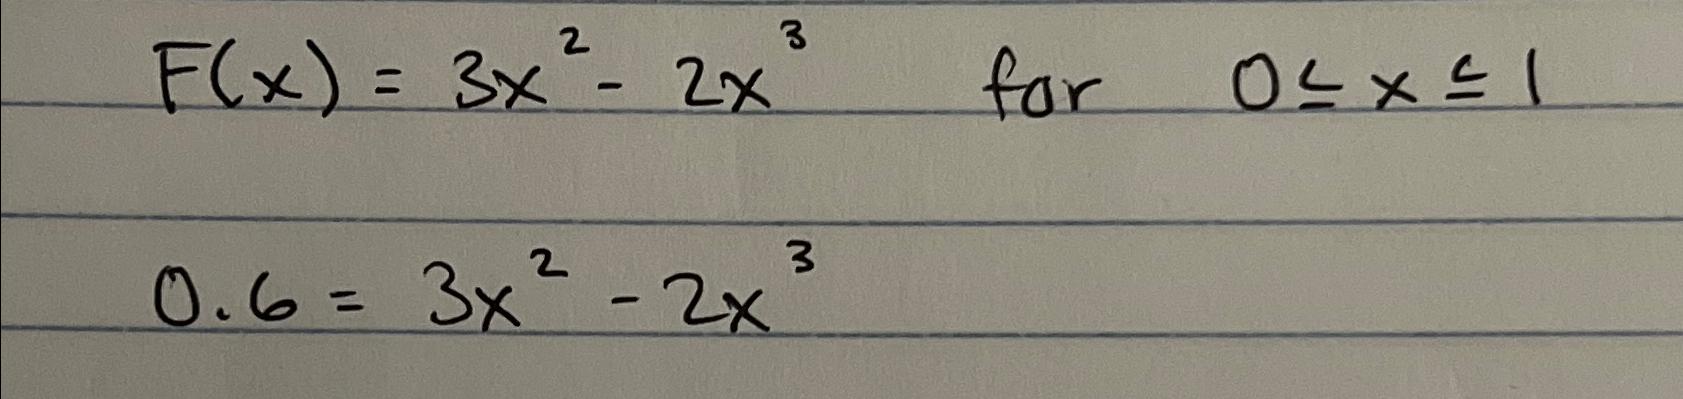 F(x) = 3x² - 2x³ for 0 ≤ x ≤ 1
0.6 = 3x² - 2x³